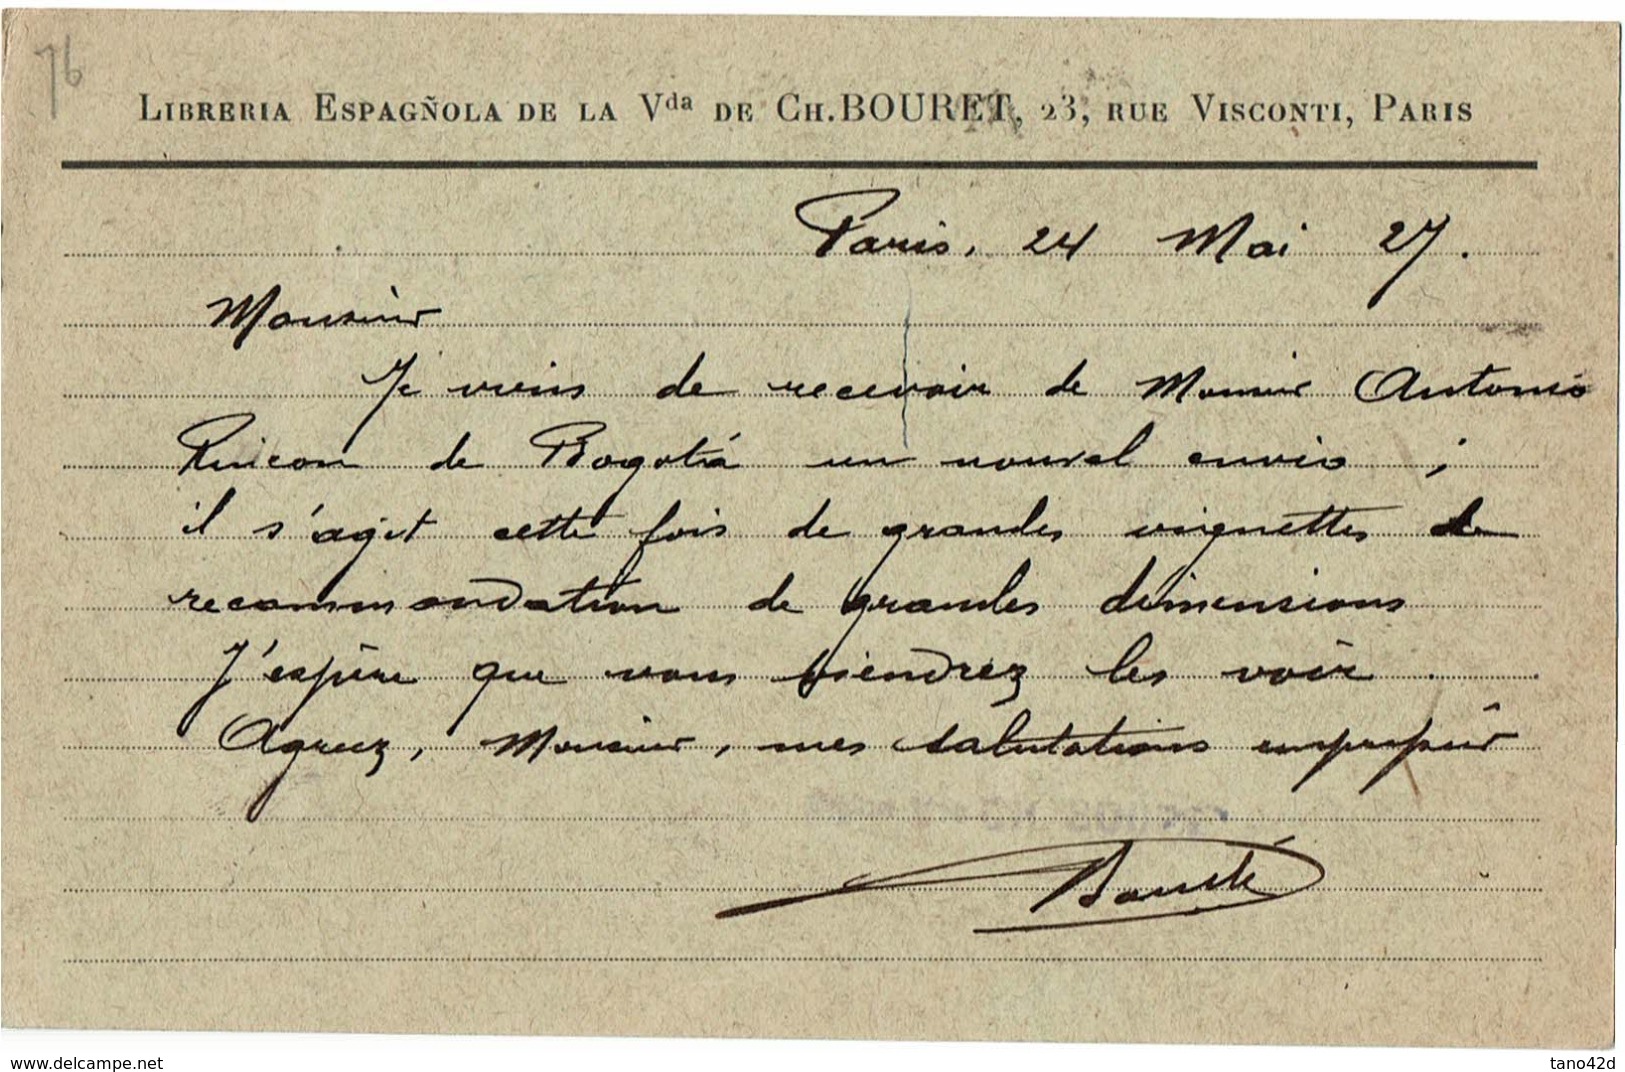 76
LIBRERIA ESPAGÑOLA DE LA Vda DE CH. BOURET, 23, RUE VISCONTI, PARIS
Paris, 24 Mai 27.
Monsieur
Je viens de recevoir de Monsieur Antonio
Rincon de Bogotá un nouvel envoi ;
il s'agit cette fois de grandes vignettes de
recommandation de grandes dimensions
J'espère que vous viendrez les voir .
Agreez, Monsieur, mes salutations empressées
www.delcampe.net
tano42d